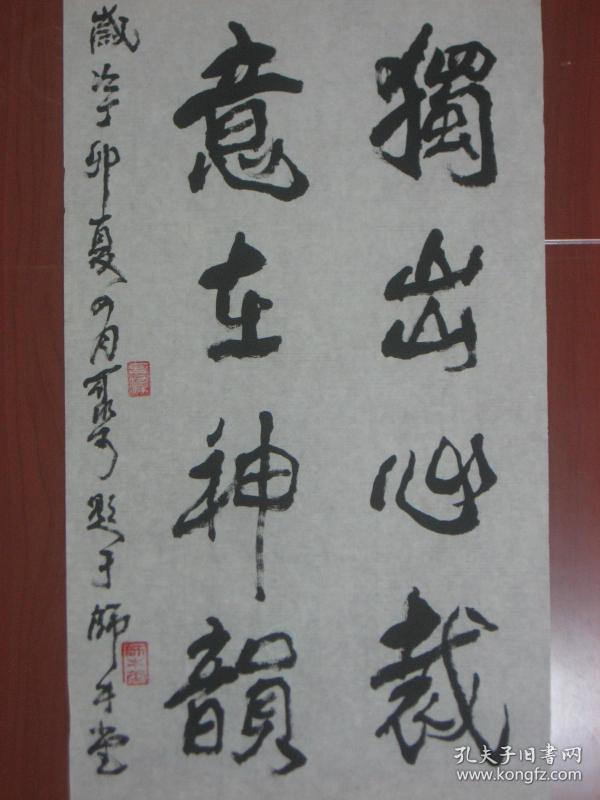 獨出心裁
意在神韻
歲次丁卯夏四月 題于師牛堂
孔夫子旧书网
www.kongfz.com